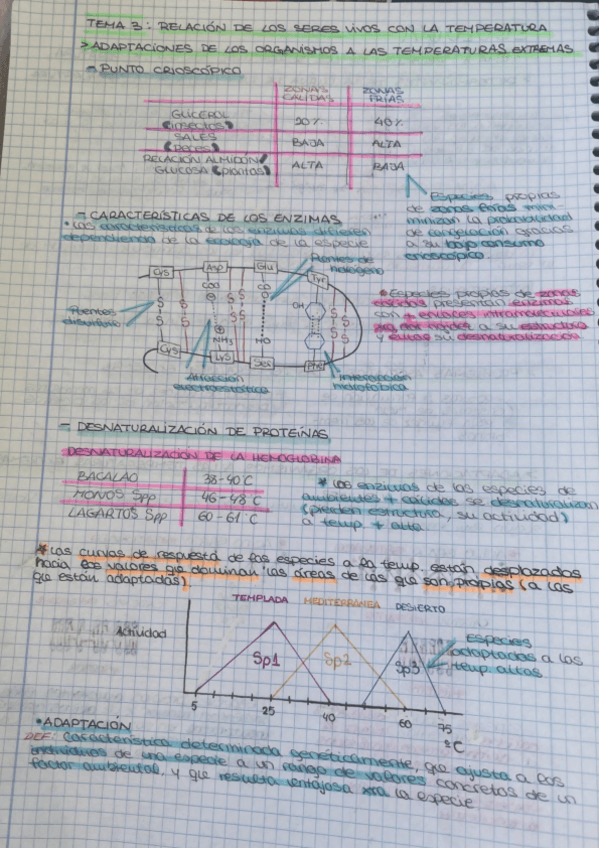 TEMA 3: RELACIÓN DE LOS SERES VIVOS CON LA TEMPERATURA
> ADAPTACIONES DE LOS ORGANISMOS A LAS TEMPERATURAS EXTREMAS
- PUNTO CRIOSCÓPICO
ZONAS CALIDAS
ZONAS FRIAS
GLICEROL (insectos)
20%
40%
SALES (peces)
BAJA
ALTA
RELACIÓN ALMIDÓN/ GLUCOSA (plantas)
ALTA
BAJA
Especies propias
de zonas frías mini-
minizan la probabilidad
de congelación gracias
a su bajo consumo
crioscópico.
- CARACTERÍSTICAS DE LOS ENZIMAS
• Las características de los enzimas difieren
dependiendo de la ecología de la especie
Puentes de
hidrógeno
Cys
Asp
Glu
Tyr
COO
CO
O
S
S
OH
Puentes
disulfuro
NH3
HO
Cys
Lys
Ser
Phe
Atracción
electroestática
Interacción
hidrofóbica
• Especies propias de zonas
cálidas presentan enzimas
con + enlaces intramoleculares
para no perder a su estructura
y evitar su desnaturalización
- DESNATURALIZACIÓN DE PROTEÍNAS
DESNATURALIZACIÓN DE LA HEMOGLOBINA
BACALAO
38-40°C
MONOS Spp
46-48°C
LAGARTOS Spp
60-61°C
* Los enzimas de las especies de
ambientes + cálidos se desnaturalizan
(pierden estructura, su actividad)
a temp + alta
* Las curvas de respuesta de las especies a la temp. están desplazados
hacia los valores qe dominan las áreas de las que son propias (a las
qe están adaptadas)
TEMPLADA
MEDITERRÁNEA
DESIERTO
Actividad
Sp1
Sp2
Sp3
Especies
adaptadas a las
temp. altas
5
25
40
60
75
°C
• ADAPTACIÓN
DEF: Característica determinada genéticamente, que ajusta a los
individuos de una especie a un rango de valores concretos de un
factor ambiental, y que resulta ventajosa xra la especie